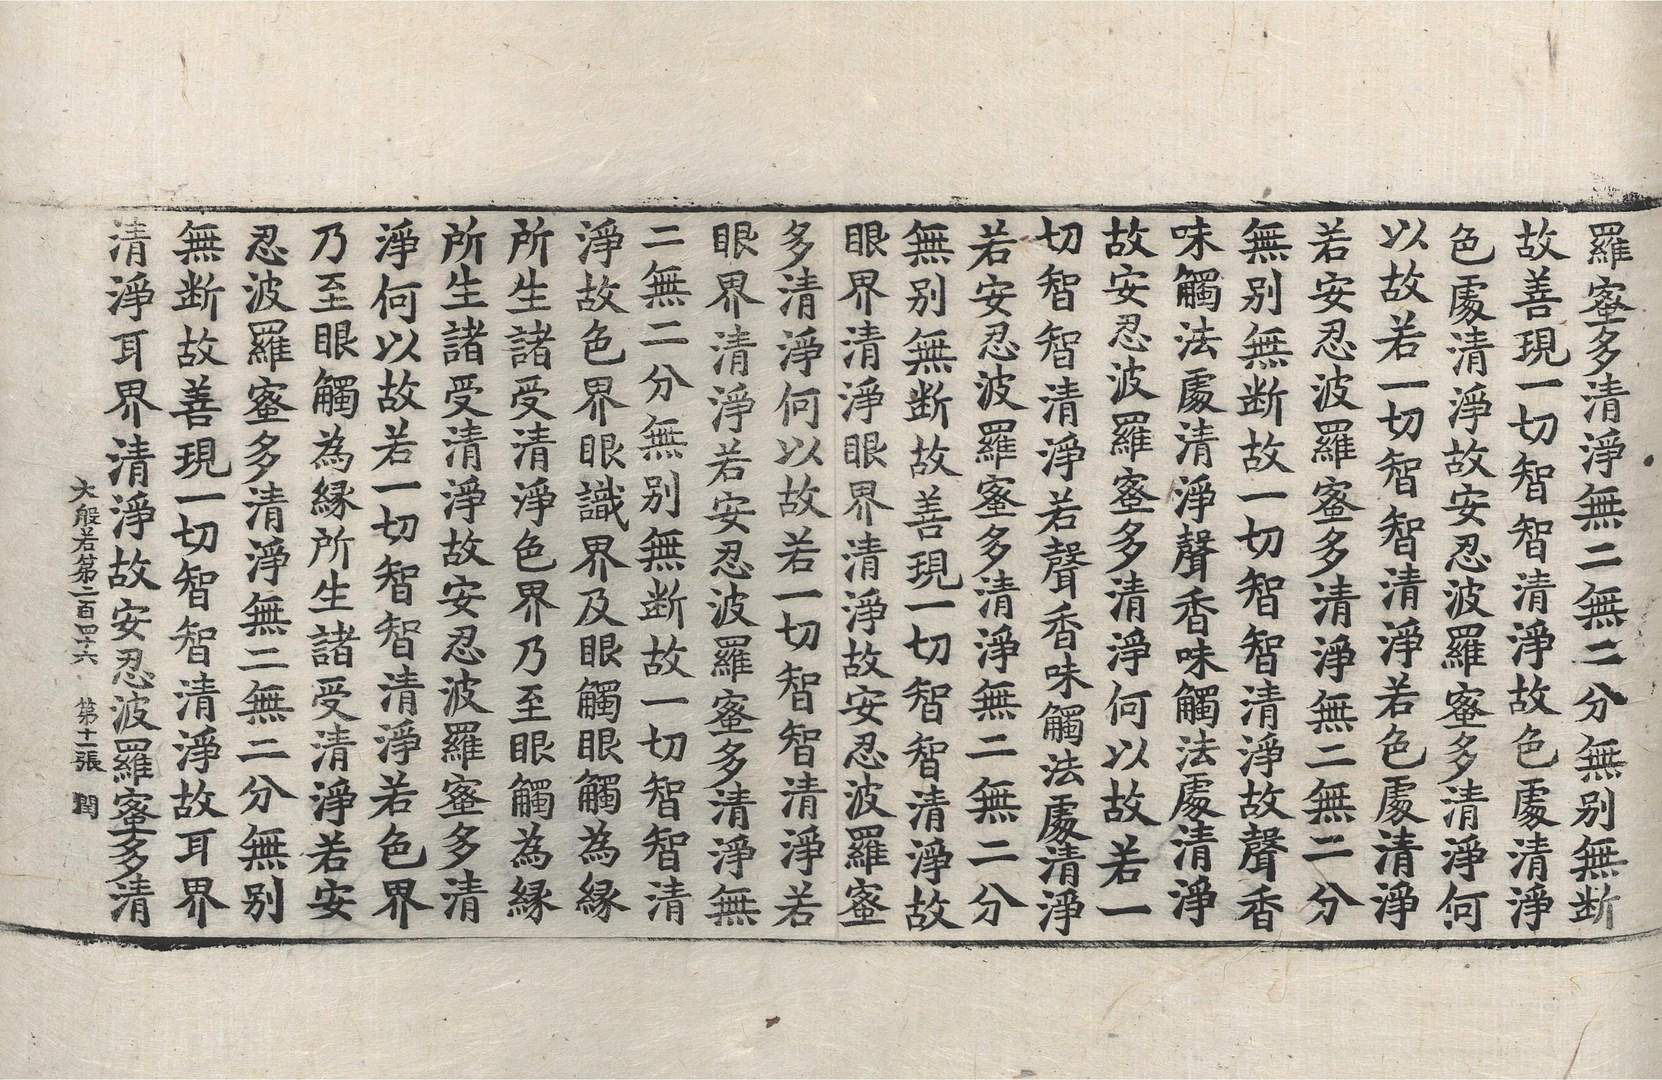 羅蜜多清淨無二無二分無别無断
故善現一切智智清淨故色處清淨
色處清淨故安忍波羅蜜多清淨何
以故若一切智智清淨若色處清淨
若安忍波羅蜜多清淨無二無二分
無别無断故一切智智清淨故聲香
味觸法處清淨聲香味觸法處清淨
故安忍波羅蜜多清淨何以故若一
切智智清淨若聲香味觸法處清淨
若安忍波羅蜜多清淨無二無二分
無别無断故善現一切智智清淨故
眼界清淨眼界清淨故安忍波羅蜜
多清淨何以故若一切智智清淨若
眼界清淨若安忍波羅蜜多清淨無
二無二分無别無断故一切智智清
淨故色界眼識界及眼觸眼觸為縁
所生諸受清淨色界乃至眼觸為縁
所生諸受清淨故安忍波羅蜜多清
淨何以故若一切智智清淨若色界
乃至眼觸為縁所生諸受清淨若安
忍波羅蜜多清淨無二無二分無别
無断故善現一切智智清淨故耳界
清淨耳界清淨故安忍波羅蜜多清
大般若第二百四十六 第十一張 閏